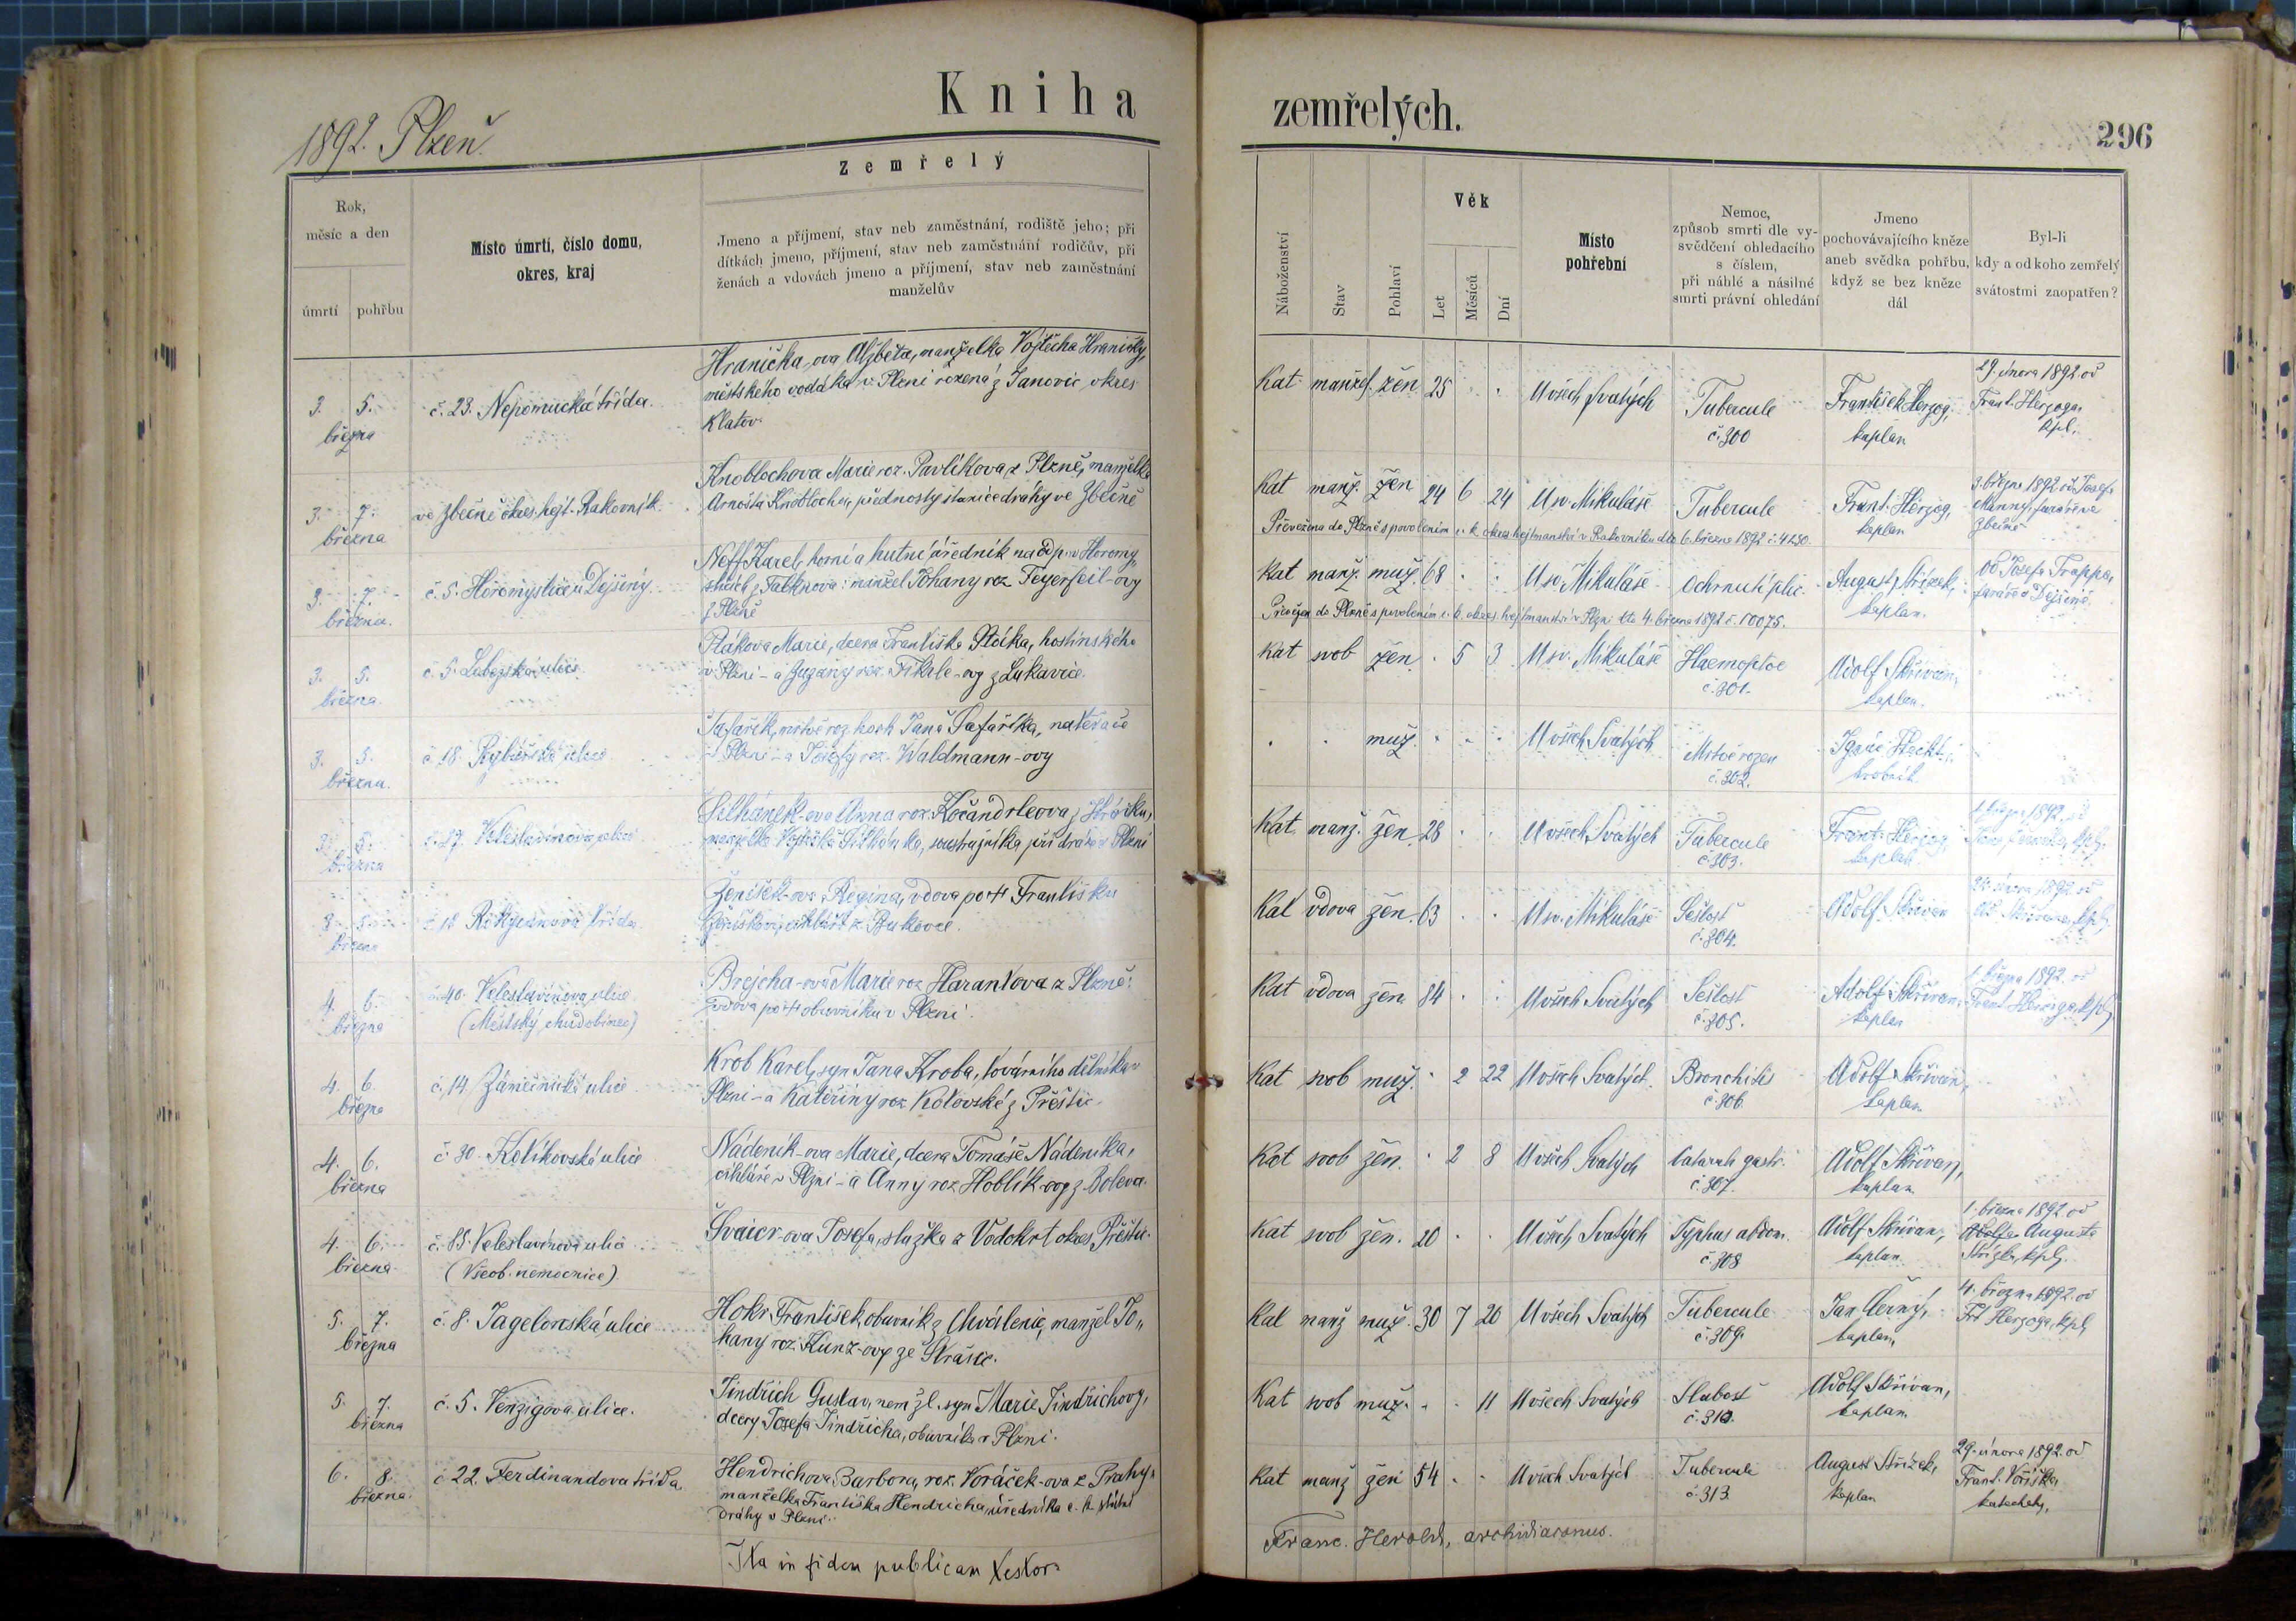 Kniha zemřelých.
1892. Plzeň.
296
Zemřelý
Rok,
měsíc a den
úmrtí
pohřbu
Místo úmrtí, číslo domu,
okres, kraj
Jmeno a příjmení, stav neb zaměstnání, rodiště jeho; při
dítkách jmeno, příjmení, stav neb zaměstnání rodičův, při
ženách a vdovách jmeno a příjmení, stav neb zaměstnání
manželův
Náboženství
Stav
Pohlaví
Věk
Let
Měsíců
Dní
Místo
pohřební
Nemoc,
způsob smrti dle vy-
svědčení ohledacího
s číslem,
při náhlé a násilné
smrti právní ohledání
Jmeno
pochovávajícího kněze
aneb svědka pohřbu,
když se bez kněze
dál
Byl-li
kdy a od koho zemřelý
svátostmi zaopatřen?
3. 5.
března
č. 23. Nepomucká třída.
Hranička-ova Alžběta, manželka Vojtěcha Hraničky,
městského vodáka v Plzni rozená z Janovic, okres
Klatov.
Kat. manžel. žen. 25 . . U všech Svatých
Tubercule
č. 300
František Herzog,
kaplan
29. února 1892. od
Frant. Herzoga,
kpl.
3. 7.
března
ve Zbečně okres. hejt. Rakovník.
Knoblochova Marie roz. Pavlíkova z Plzně, manželka
Arnošta Knoblocha, přednosty stanice dráhy ve Zbečně
Kat manž. žen 24 6 24 U sv. Mikuláše
Tubercule
Frant. Herzog,
kaplan
3. března 1892 od Josefa
Manny, faráře ve
Zbečně
Převežena do Plzně s povolením c. k. okres. hejtmanství v Rakovníku dto 6. března 1892 č. 4250.
3. 7.
března.
č. 5. Horomyslice u Dejšiny.
Neff Karel, horní a hutní úředník na odp. v Horomy„
slicích z Falknova: manžel Johany roz. Feyerfeil-ovy
z Plzně
Kat manž. muž. 68 . . U sv. Mikuláše
Ochrnutí plic.
August Střízek,
kaplan.
Od Josefa Trappa,
faráře v Dejšině.
Převežen do Plzně s povolením c. k. okres. hejtmanství v Plzni dto 4. března 1892 č. 10075.
3. 5.
března.
č. 5. Lobezská ulice
Ptáková Marie, dcera Františka Ptáka, hostinského
v Plzni - a Zuzany roz. Fikrle-ovy z Lukavice.
Kat svob žen. . 5 3. U sv. Mikuláše
Haemoptoe
č. 301.
Adolf Skřivan,
kaplan.
3. 5.
března.
č. 18. Rybářská ulice
Šafařík, mrtvě roz. hoch Jana Šafaříka, natěrače
v Plzni - a Josefy roz. Waldmann-ovy
muž. . . . U všech Svatých
Mrtvě rozen
č. 302.
Ignác Hecht,
hrobník
3. 5.
března
č. 27. Veleslavínova ulice
Silhánek-ova Anna roz. Kočandrleova z Hrádku,
manželka Vojtěcha Silhánka, soustružníka při dráze v Plzni
Kat. manž. žen. 28 . . U všech Svatých
Tubercule
č. 303.
Frant. Herzog,
kaplan
1. března 1892, od
3. 5.
března
č. 18 Rokycanova třída.
Ženíšek-ova Regina, vdova po ✝ Františku
Kat vdova žen. 63 . . U sv. Mikuláše
Sešlost
č. 304.
Adolf Skřivan
28. února 1892. od
Ad. Skřivana, kpl.
4. 6.
března
č. 40. Veleslavínova ulice
(Městský chudobinec)
Brejcha-ova Marie roz Harantova z Plzně:
vdova po ✝ obuvníku v Plzni.
Kat vdova žen. 84 . . U všech Svatých
Sešlost
č. 305.
Adolf Skřivan,
kaplan
1. března 1892. od
Frant. Herzoga, kpl.
4. 6.
března
č. 14 Zámečnická ulice
Krob Karel, syn Jana Kroba, továrního dělníka v
Plzni - a Kateřiny roz. Kotovské z Přeštic.
Kat svob muž. . 2 22 U všech Svatých.
Bronchitis
č. 306.
Adolf Skřivan,
kaplan.
4. 6.
března
č. 30. Kotíkovská ulice
Nádeník-ova Marie, dcera Tomáše Nádeníka,
cihláře v Plzni - a Anny roz. Hoblík-ovy z Bolevce.
Kat svob žen. . 2 8 U všech Svatých
Catarrh gastr.
č. 307.
Adolf Skřivan,
kaplan.
4. 6.
března.
č. 85. Veleslavínova ulice
(Všeob. nemocnice)
Švaicr-ova Josefa, služka z Vodokrt okres Přeštic.
Kat svob žen. 20 . . U všech Svatých
Typhus abdom.
č. 308
Adolf Skřivan,
kaplan.
1. března 1892 od
Adolfa Augusta
Střízka, kpl.
5. 7.
března
č. 8. Jagelonská ulice
Hokr František, obuvník z Chválenic, manžel Jo„
hany roz. Kunz-ovy ze Strašic.
Kat manž muž. 30 7 26 U všech Svatých
Tubercule
č. 309.
Jan Černý,
kaplan
4. března 1892. od
Frt Herzoga, kpl.
5. 7.
března
č. 5. Venzigova ulice.
Jindřich Gustav, nemžl. syn Marie Jindřichovy,
dcery Josefa Jindřicha, obuvníka v Plzni.
Kat svob muž. . . 11 U všech Svatých
Slabost
č. 310.
Adolf Skřivan,
kaplan
6. 8.
března.
č. 22. Ferdinandova třída.
Hendrichova Barbora, roz. Voráček-ova z Prahy,
manželka Františka Hendricha, úředníka c. k. státní
dráhy v Plzni.
Kat manž žen 54 . . U všech Svatých
Tubercule
č. 313.
August Střízek,
kaplan
29. února 1892. od
Frant. Voříška,
katechety.
Ita in fidem publicam testor
Franc. Herold, archidiaconus.